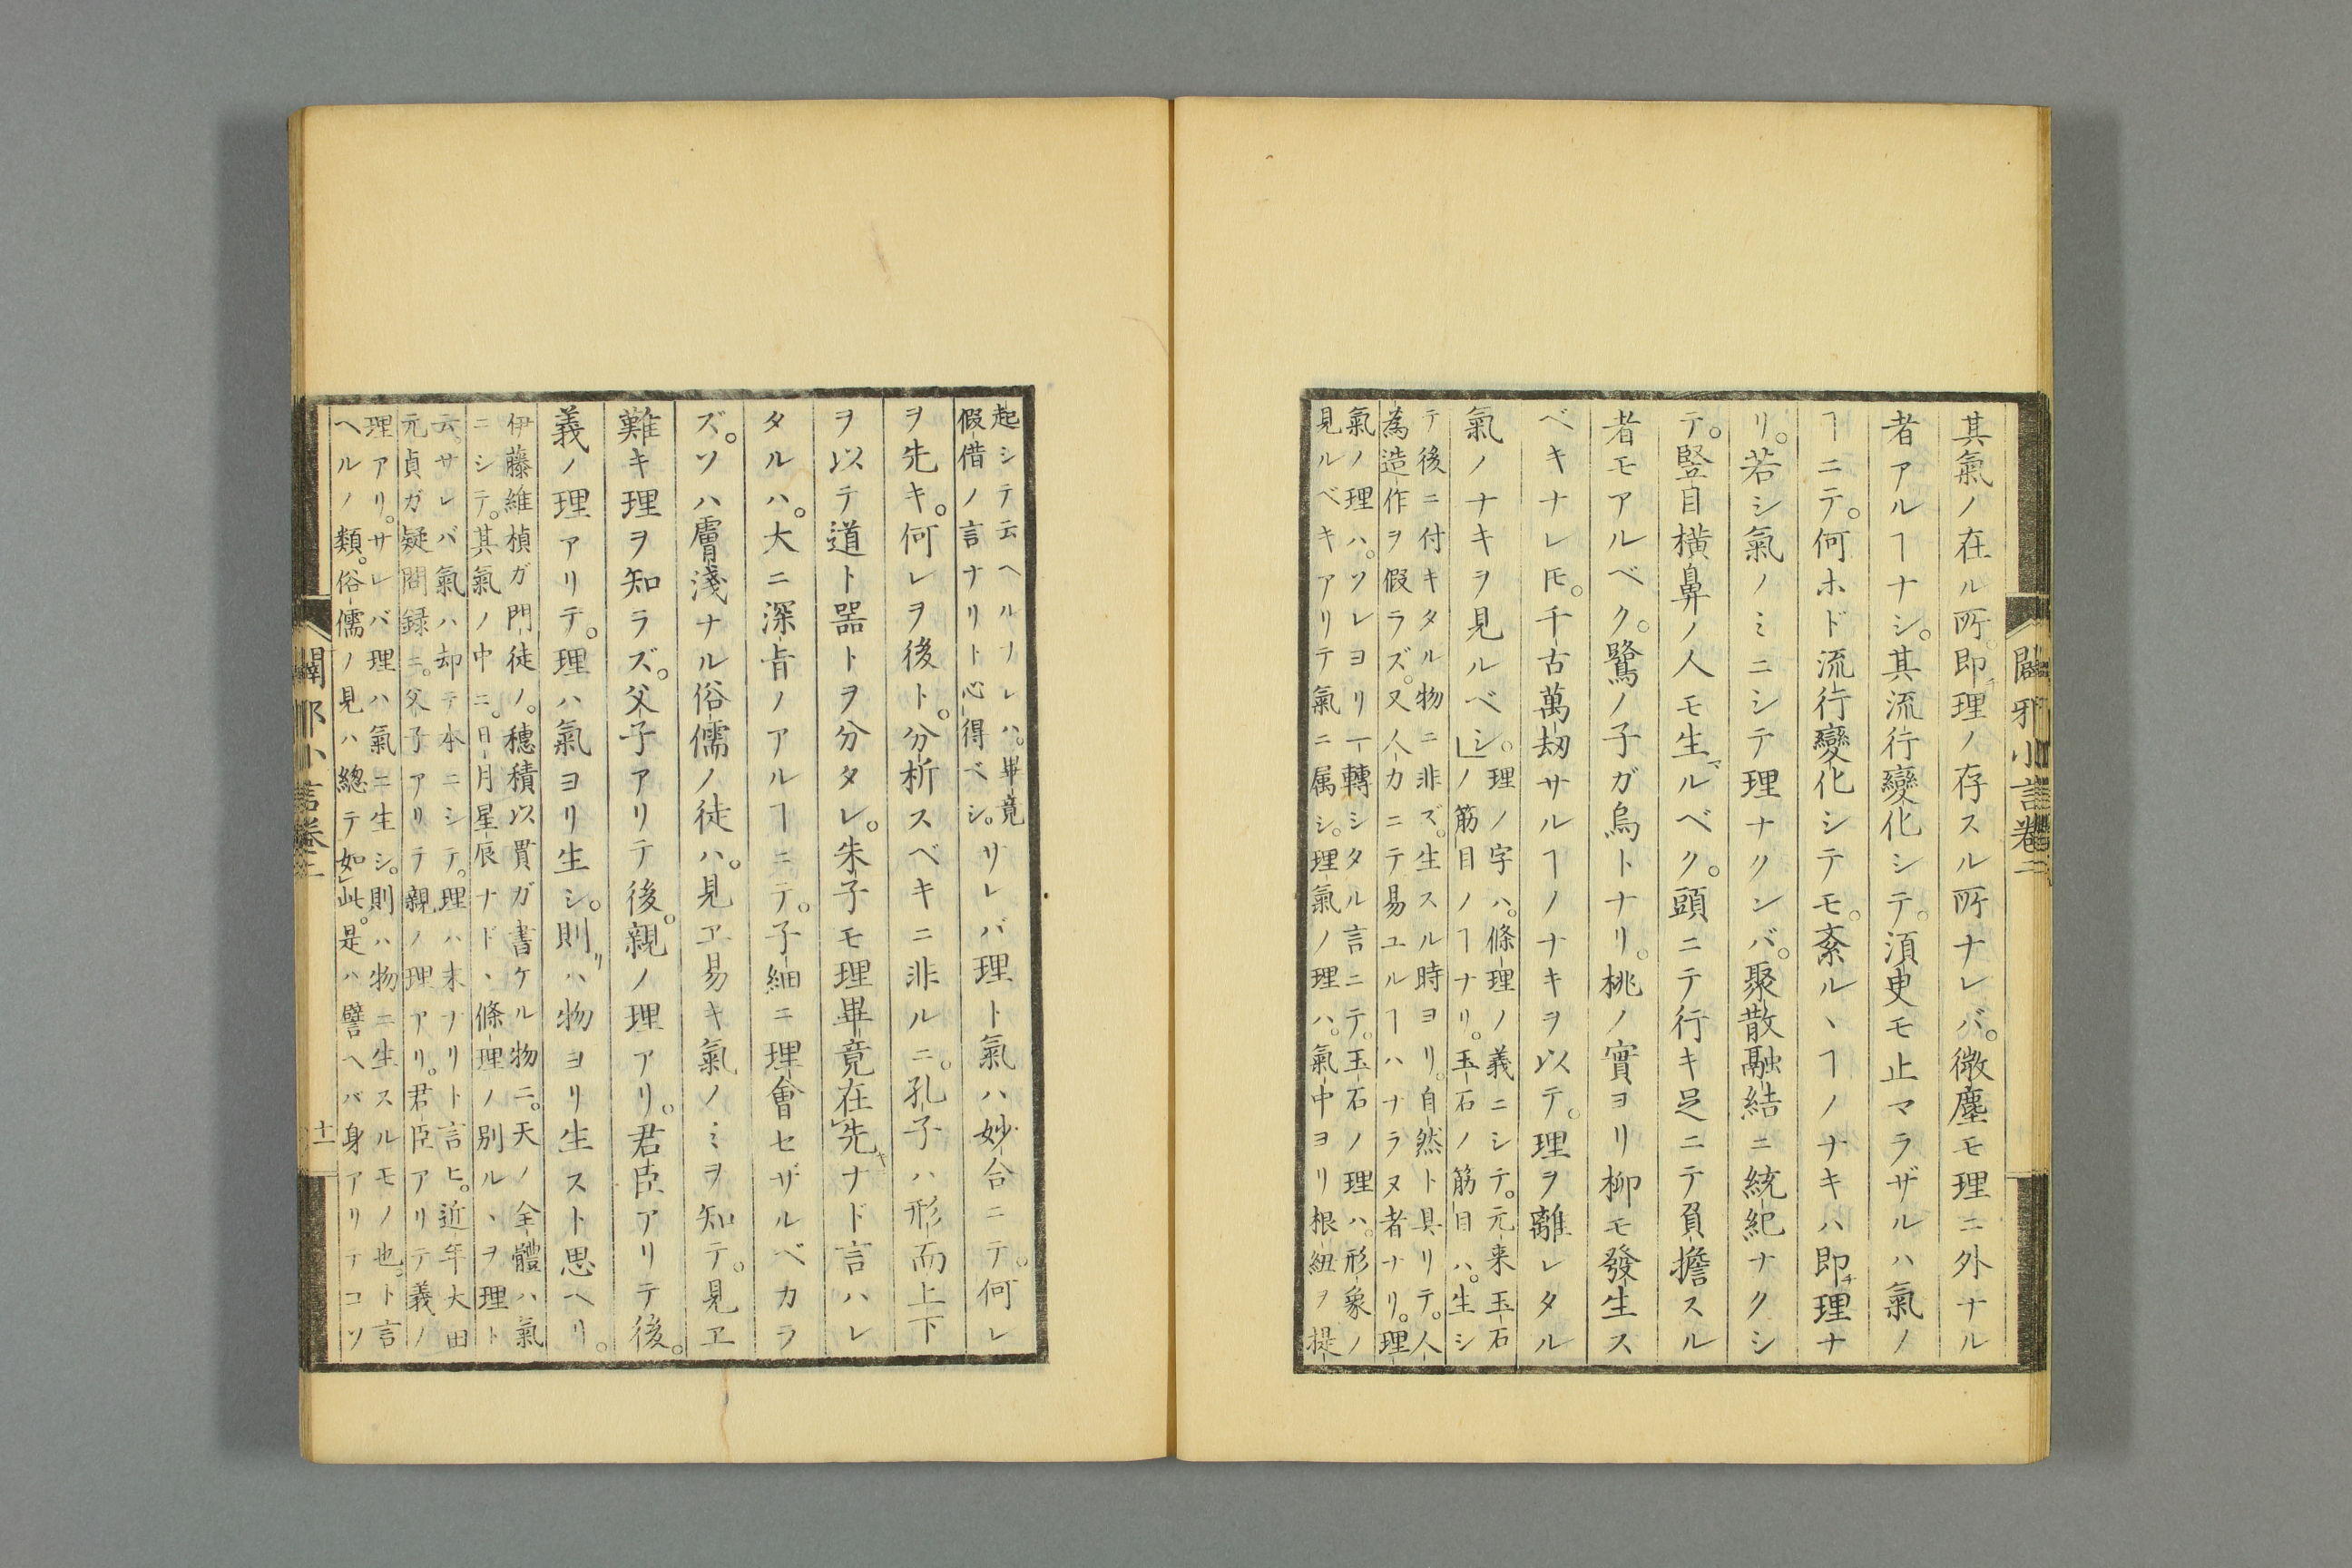 闢邪小言卷二
其氣ノ在ル所。即チ理ノ存スル所ナレバ。微塵モ理ニ外ナル
者アルヿナシ。其流行變化シテ。須臾モ止マラザルハ氣ノ
ヿニテ。何ホド流行變化シテモ。紊ルヽヿノナキハ即チ理ナ
リ。若シ氣ノミニシテ理ナクンバ。聚散融結ニ統紀ナクシ
テ。竪目橫鼻ノ人モ生マルベク。頭ニテ行キ足ニテ負擔スル
者モアルベク。鷺ノ子ガ烏トナリ。桃ノ實ヨリ柳モ發生ス
ベキナレ𪜈。千古萬劫サルヿノナキヲ以テ。理ヲ離レタル
氣ノナキヲ見ルベシ。
理ノ字ハ。條理ノ義ニシテ。元来玉石
ノ筋目ノヿナリ。玉石ノ筋目ハ。生シ
テ後ニ付キタル物ニ非ズ。生スル時ヨリ。自然ト具リテ。人
為造作ヲ假ラズ。又人力ニテ易ユルヿハナラヌ者ナリ。理
氣ノ理ハ。ソレヨリ一轉シタル言ニテ。玉石ノ理ハ。形象ノ
見ルベキアリテ氣ニ属シ。理氣ノ理ハ。氣中ヨリ根紐ヲ提
起シテ云ヘルナレハ。畢竟
假借ノ言ナリト心得ベシ。
サレバ理ト氣ハ妙合ニテ。何レ
ヲ先キ。何レヲ後ト。分析スベキニ非ルニ。孔子ハ形而上下
ヲ以テ道ト器トヲ分タレ。朱子モ理畢竟在先キナド言ハレ
タルハ。大ニ深旨ノアルヿニテ。子細ニ理會セザルベカラ
ズ。ソハ膚淺ナル俗儒ノ徒ハ。見ヱ易キ氣ノミヲ知テ。見ヱ
難キ理ヲ知ラズ。父子アリテ後。親ノ理アリ。君臣アリテ後。
義ノ理アリテ。理ハ氣ヨリ生シ。則リハ物ヨリ生スト思ヘリ。
伊藤維楨ガ門徒ノ。穗積以貫ガ書ケル物ニ。天ノ全體ハ氣
ニシテ。其氣ノ中ニ。日月星辰ナド、條理ノ別ルヽヲ理ト
云。サレバ氣ハ却テ本ニシテ。理ハ末ナリト言ヒ。近年大田
元貞ガ疑問録ニ。父子アリテ親ノ理アリ。君臣アリテ義ノ
理アリ。サレバ理ハ氣ニ生シ。則ハ物ニ生スルモノ也。ト言
ヘルノ類。俗儒ノ見ハ總テ如此。是ハ譬ヘバ身アリテコソ
闢邪小言卷二
十一